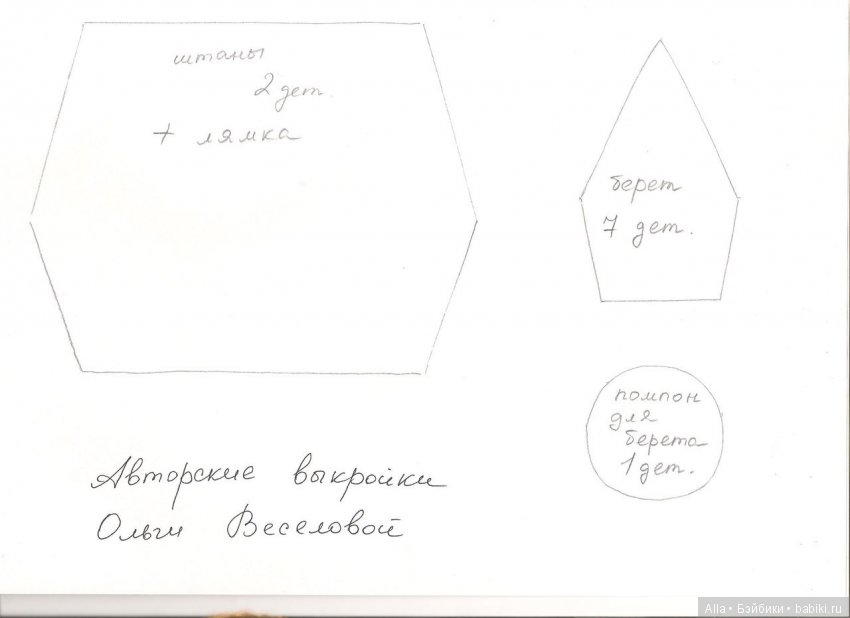 штаны
2 дет.
+ лямка
берет
7 дет.
помпон
для
берета
1 дет.
Авторские выкройки
Ольги Веселовой
Alla • Бэйбики • babiki.ru